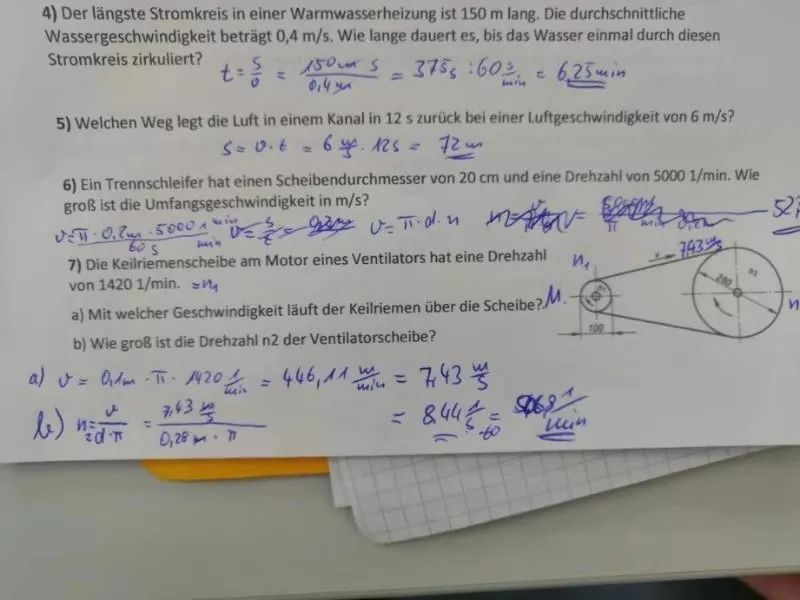 4) Der längste Stromkreis in einer Warmwasserheizung ist 150 m lang. Die durchschnittliche
Wassergeschwindigkeit beträgt 0,4 m/s. Wie lange dauert es, bis das Wasser einmal durch diesen
Stromkreis zirkuliert?
t = s/v = 150 m s / 0,4 m = 375 s : 60 s/min = 6,25 min
5) Welchen Weg legt die Luft in einem Kanal in 12 s zurück bei einer Luftgeschwindigkeit von 6 m/s?
s = v · t = 6 m/s · 12s = 72 m
6) Ein Trennschleifer hat einen Scheibendurchmesser von 20 cm und eine Drehzahl von 5000 1/min. Wie
groß ist die Umfangsgeschwindigkeit in m/s?
v = π · 0,2m · 5000 1 min / 60 s min v = π · d · n 52,
7) Die Keilriemenscheibe am Motor eines Ventilators hat eine Drehzahl
von 1420 1/min. = n1
a) Mit welcher Geschwindigkeit läuft der Keilriemen über die Scheibe?
b) Wie groß ist die Drehzahl n2 der Ventilatorscheibe?
n1 v 7,43 m/s
M. 280 n
100
a) v = 0,1m · π · 1420 1/min = 446,11 m/min = 7,43 m/s
b) n2 = v / d · π = 7,43 m/s / 0,28 m · π = 8,44 1/s · 60 = 1/min